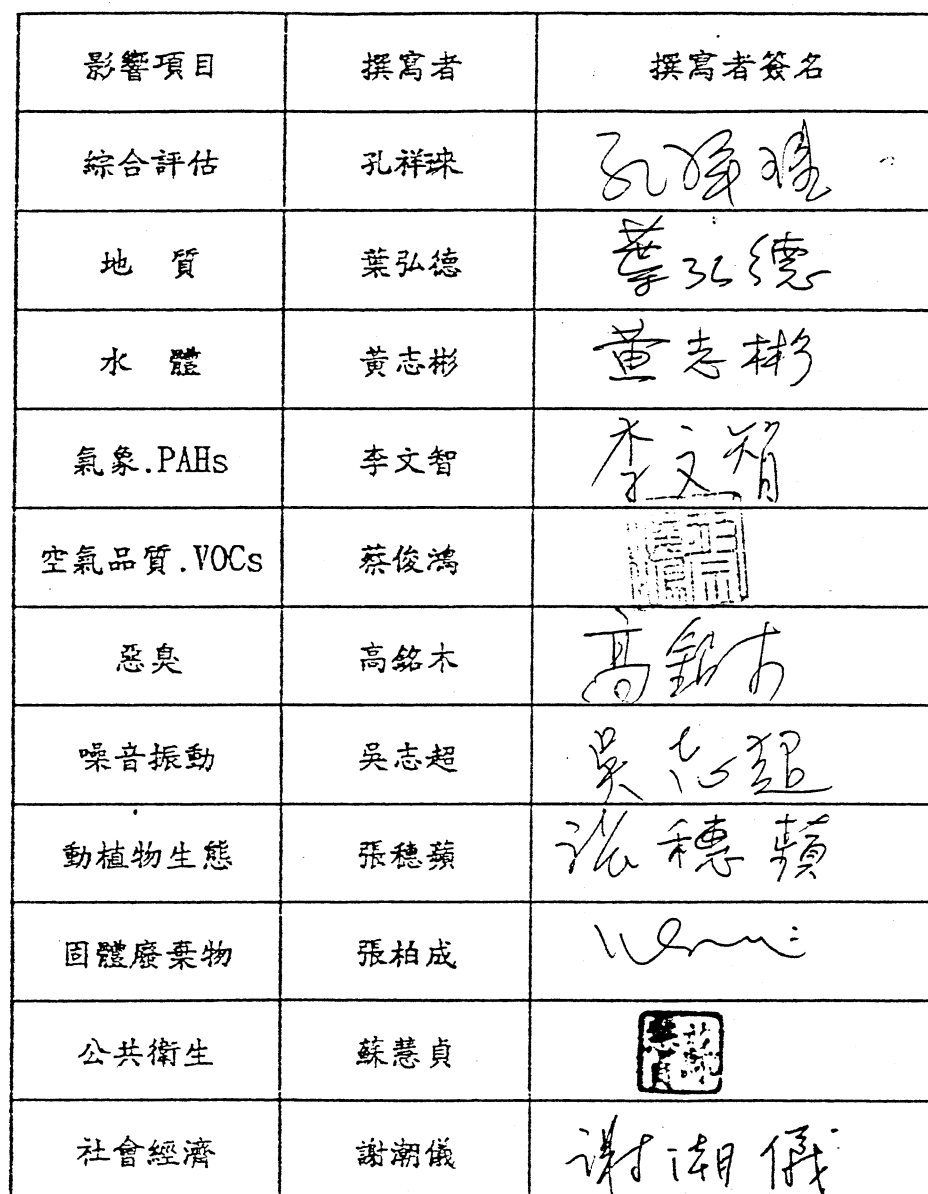 影響項目 撰寫者 撰寫者簽名
綜合評估 孔祥琜 孔祥琜
地 質 葉弘德 葉弘德
水 體 黃志彬 黃志彬
氣象.PAHs 李文智 李文智
空氣品質.VOCs 蔡俊鴻
惡臭 高銘木 高銘木
噪音振動 吳志超 吳志超
動植物生態 張穗蘋 張穗蘋
固體廢棄物 張柏成
公共衛生 蘇慧貞 蘇慧貞
社會經濟 謝潮儀 謝潮儀